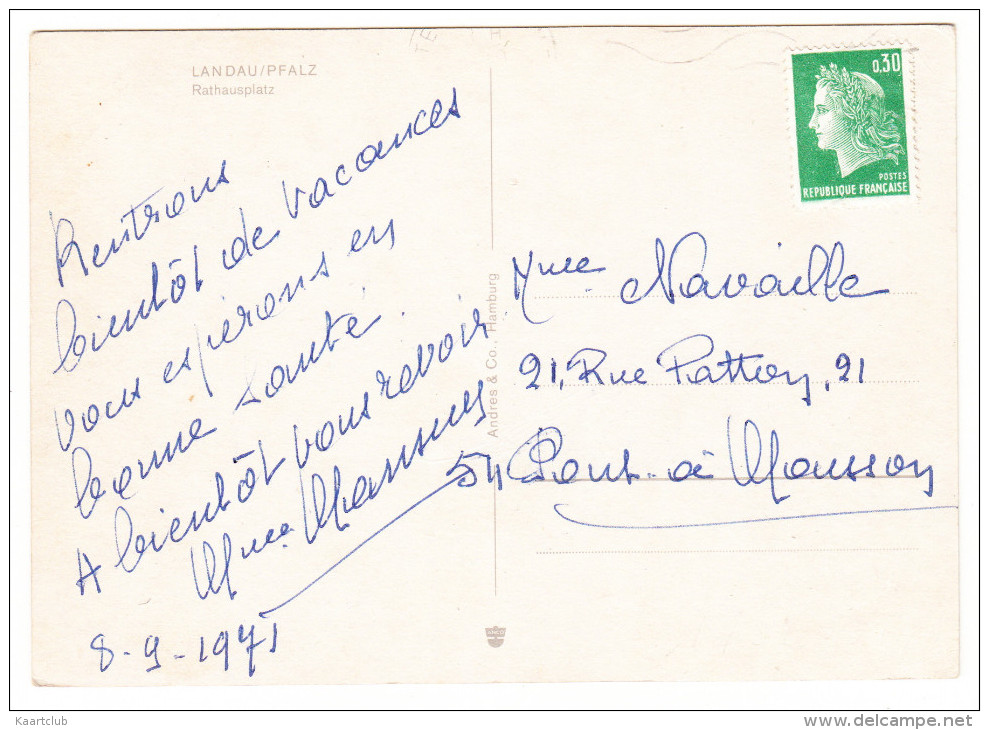 LANDAU/PFALZ
Rathausplatz
Rentrons
bientôt de vacances
vous espérons en
bonne santé.
A bientôt vous revoir.
Mme Mansuy
8-9-1971
Andres & Co., Hamburg
0,30
POSTES
REPUBLIQUE FRANÇAISE
Mme Navaille
21, Rue Patton, 21
54 Pont-à Mousson
Kaartclub
www.delcampe.net